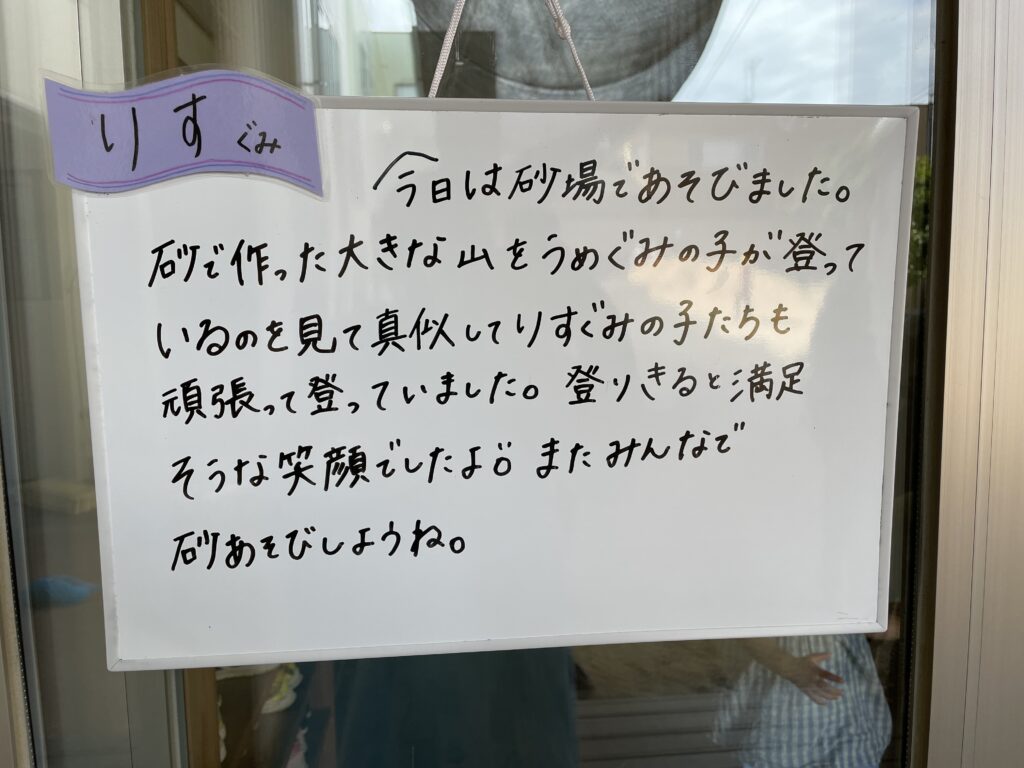 りす ぐみ
今日は砂場であそびました。
砂で作った大きな山をうめぐみの子が登って
いるのを見て真似してりすぐみの子たちも
頑張って登っていました。登りきると満足
そうな笑顔でしたよ¨ またみんなで
砂あそびしようね。